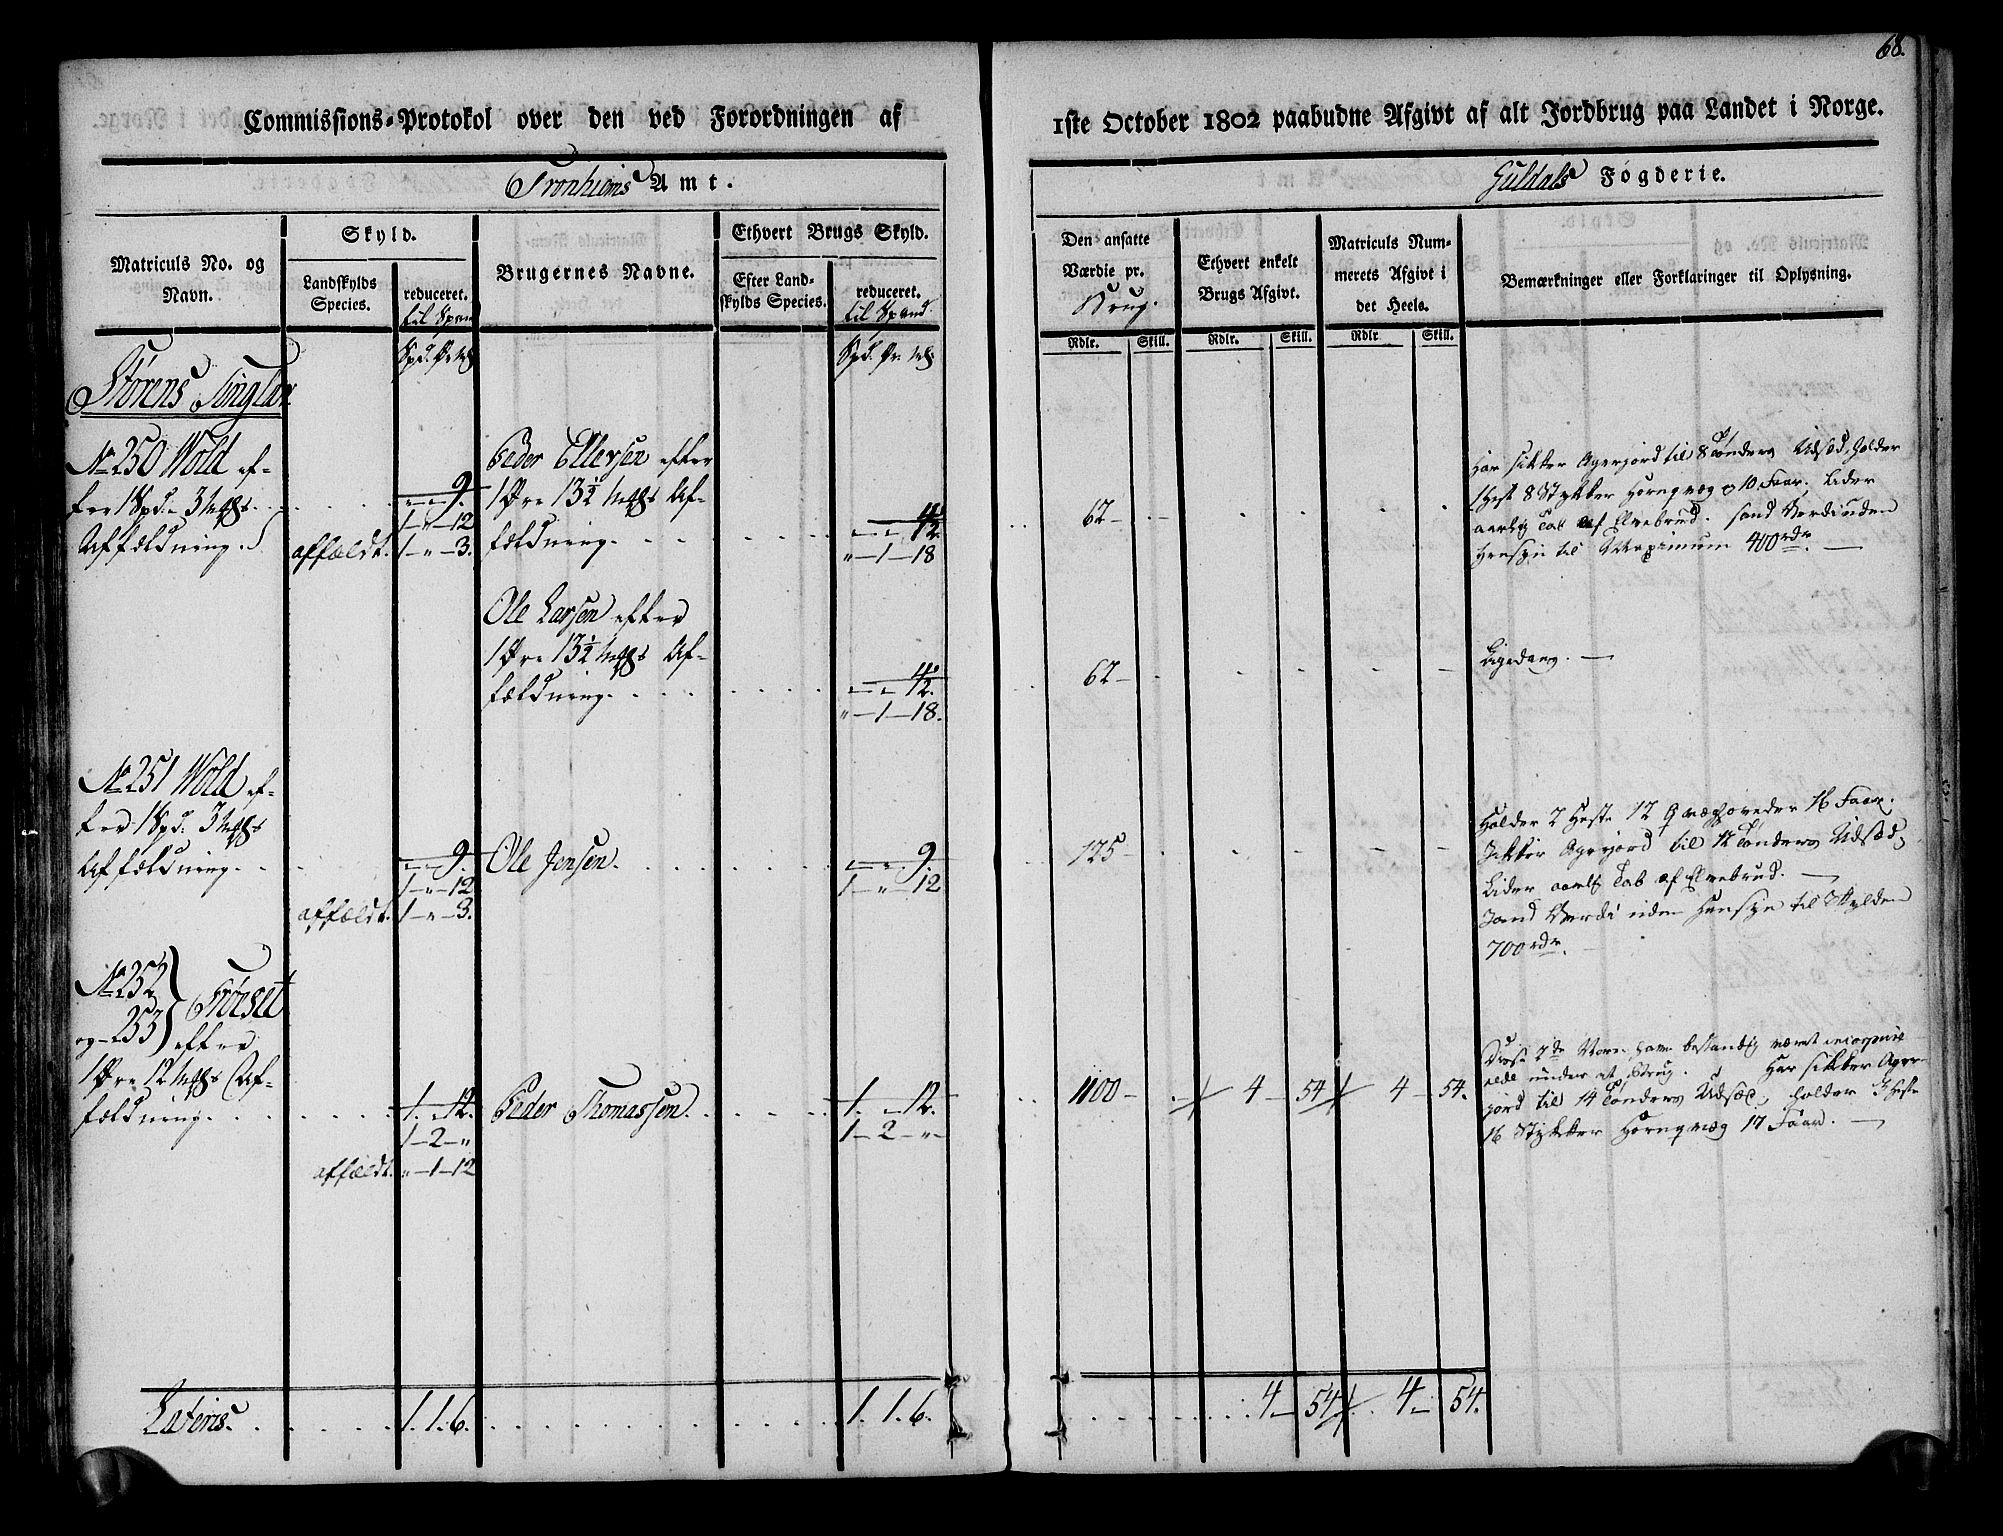 68.
Commissions-Protokol over den ved Forordningen af
1ste October 1802 paabudne Afgivt af alt Jordbrug paa Landet i Norge.
Tronhiems Amt.
Guldals Fogderie.
Matriculs No. og Navn.
Skyld.
Landskylds Species.
reduceret.
til Spand
Brugernes Navne.
Ethvert Brugs Skyld.
Efter Landskylds Species.
reduceret.
til Spand.
Den ansatte Værdie pr.
Brug.
Ethvert enkelt Brugs Afgivt.
Matriculs Nummerets Afgivt i det Heele.
Bemærkninger eller Forklaringer til Oplysning.
Rdlr. Skill. Rdlr. Skill. Rdlr Skill.
Størens Tinglav
No 250 Wold ef-
ter 1 Spd. - 3 mkl
Affældning.
9.
1 - " - 12
affældt. 1 - " - 3.
Peder Ellersen efter
1 Øre 13½ mkl Af-
fældning.
4½.
" - 1 - 18
62 -
Har sikker Agerjord til 8 Tønders Udsæd, holder
1 Hest 8 Stykker Hornqvæg og 10 Faar. Lider
aarlig Tab af Elvebrud. sand Værdi uden
Hensyn til Maximum 400 rdr. —
Ole Larsen efter
1 Øre 13½ mkl Af-
fældning.
4½.
" - 1 - 18.
62 -
Ligedan. —
No 251 Wold ef-
ter 1 Spd. 3 mkl
Affældning
9.
1 - " - 12
affældt. 1 - " - 3.
Ole Jensen.
9.
1 - " 12
125 -
Holder 2 Heste 12 Qvæghoveder 16 Faar.
Sikker Agerjord til 12 Tønders Udsæd,
Lider aarlig Tab af Elvebrud. —
Sand Værdi uden Hensyn til Skylden
700 rdr. —
No 252
og 253 } Frøeset
efter
1 Øre 12 mkl Af-
fældning.
1. - 12.
1 - 2 - "
affældt. " - 1 - 12
Peder Thomassen.
1. - 12.
1 - 2 - "
1100 - 4 - 54 4 - 54.
Disse 2de have bestandig været
under et Brug. Har sikker Ager-
jord til 14 Tønders Udsæd, holder 3 Heste
16 Stykker Hornqvæg 17 Faar. —
Lateris. 1. 1. 6. 1. 1. 6. 4 - 54 4 - 54.